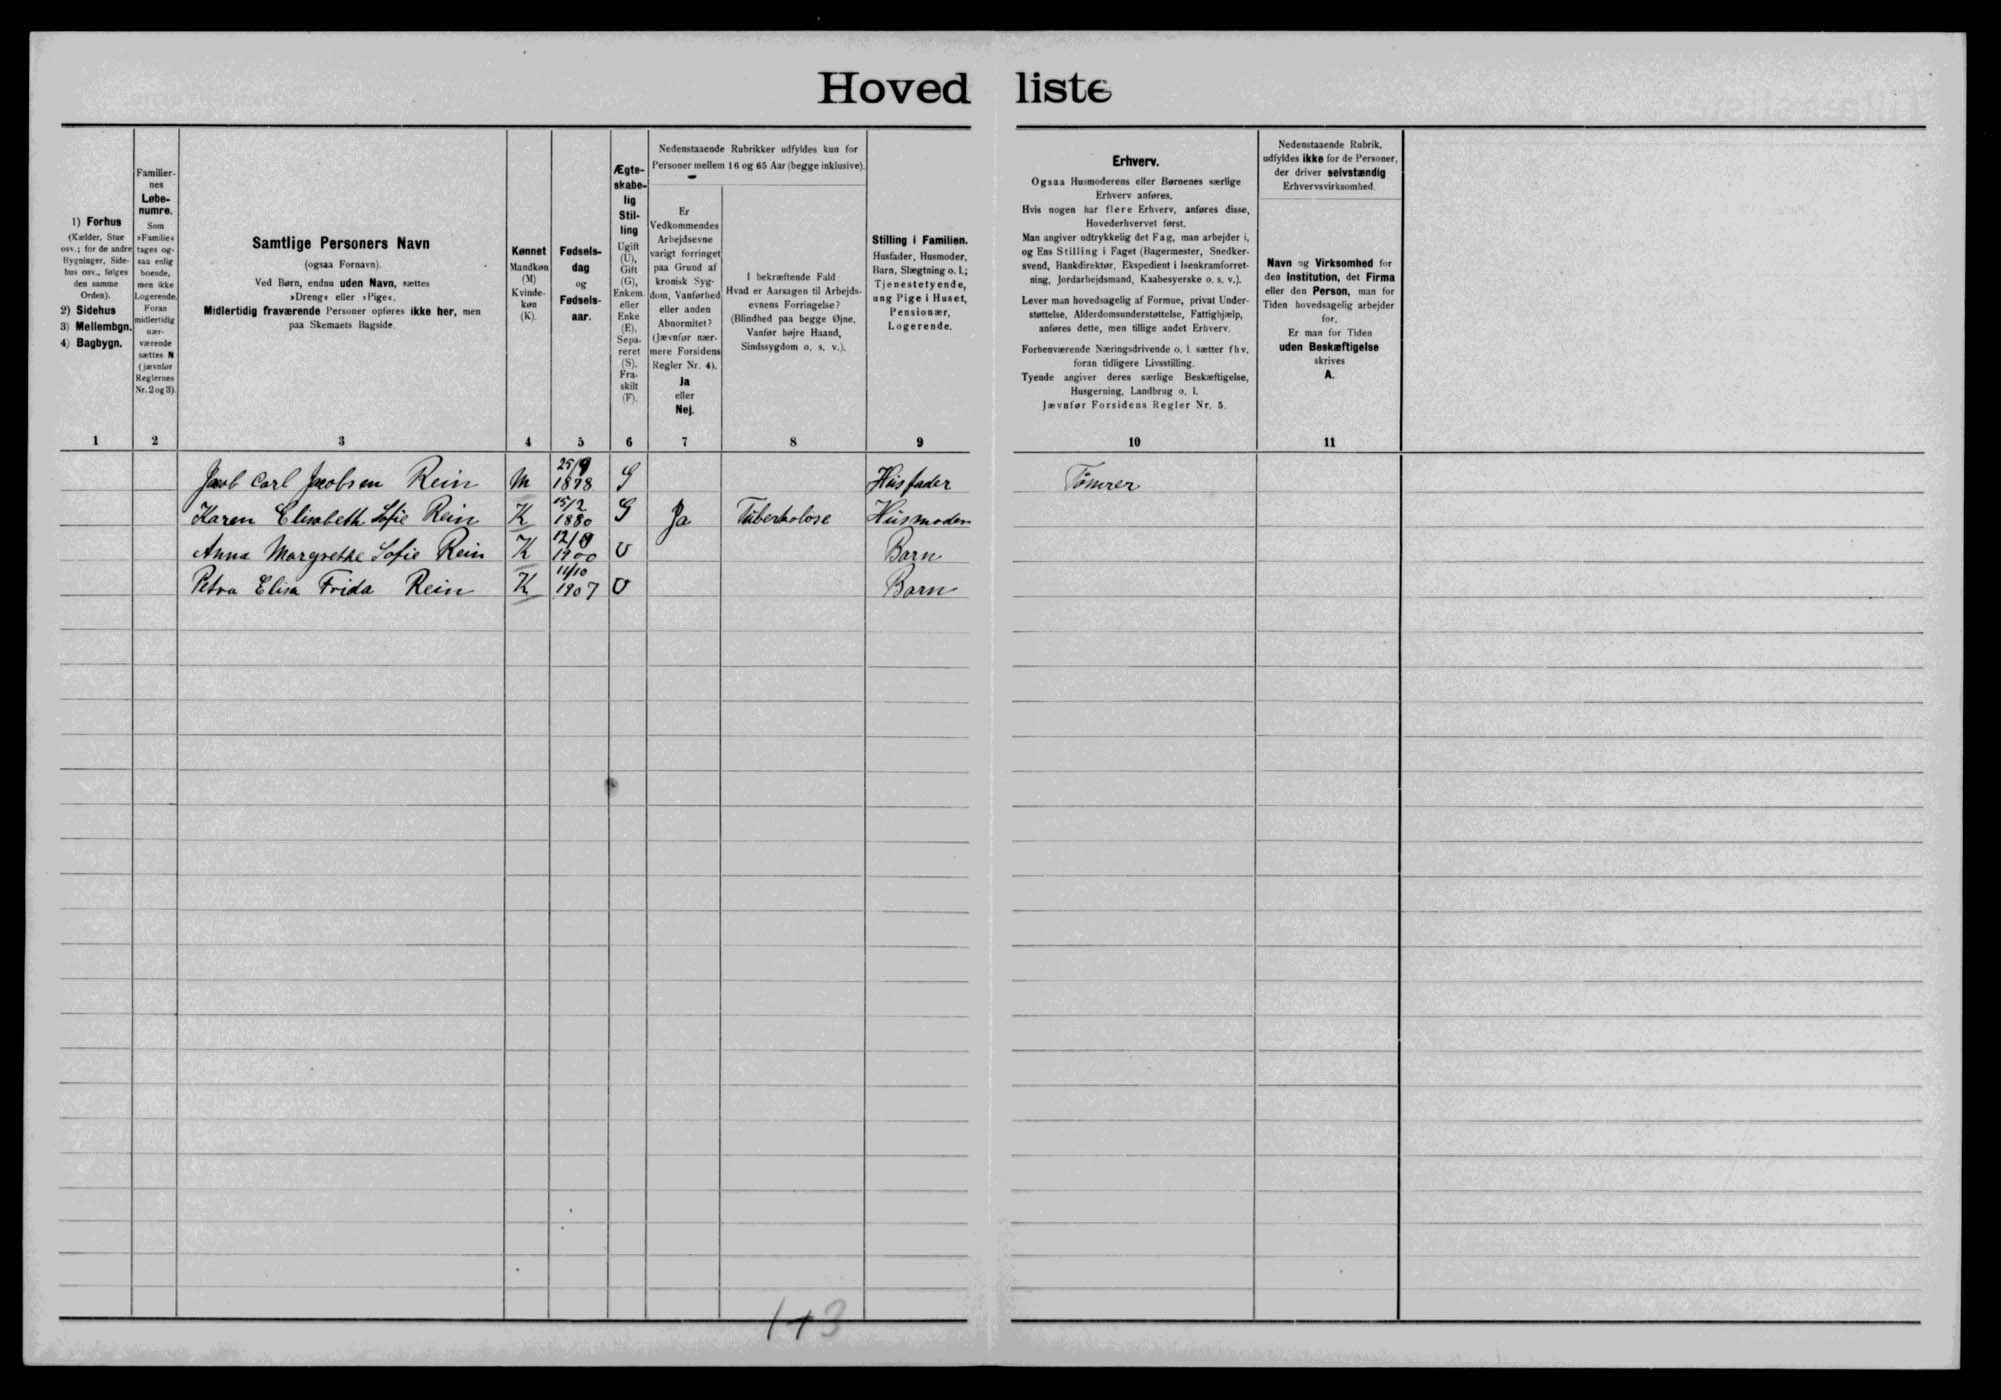 Hovedliste
1) Forhus
(Kælder, Stue
osv.; for de andre
Bygninger, Side-
hus osv., følges
den samme
Orden).
2) Sidehus
3) Mellembgn.
4) Bagbygn.
1
Familier-
nes
Løbe-
numre.
Som
»Familie«
tages og-
saa enlig
boende,
men ikke
Logerende.
Foran
midlertidig
nær-
værende
sættes N
(jævnfør
Reglernes
Nr. 2 og 3).
2
Samtlige Personers Navn
(ogsaa Fornavn).
Ved Børn, endnu uden Navn, sættes
»Dreng« eller »Pige«.
Midlertidig fraværende Personer opføres ikke her, men
paa Skemaets Bagside.
3
Kønnet
Mandkøn
(M)
Kvinde-
køn
(K).
4
Fødsels-
dag
og
Fødsels-
aar.
5
Ægte-
skabe-
lig
Stil-
ling
Ugift
(U),
Gift
(G),
Enkem.
eller
Enke
(E),
Sepa-
reret
(S),
Fra-
skilt
(F).
6
Nedenstaaende Rubrikker udfyldes kun for
Personer mellem 16 og 65 Aar (begge inklusive).
Er
Vedkommendes
Arbejdsevne
varigt forringet
paa Grund af
kronisk Syg-
dom, Vanførhed
eller anden
Abnormitet?
(Jævnfør nær-
mere Forsidens
Regler Nr. 4).
Ja
eller
Nej.
7
I bekræftende Fald:
Hvad er Aarsagen til Arbejds-
evnens Forringelse?
(Blindhed paa begge Øjne,
Vanfør højre Haand,
Sindssygdom o. s. v.).
8
Stilling i Familien.
Husfader, Husmoder,
Barn, Slægtning o. l.;
Tjenestetyende,
ung Pige i Huset,
Pensionær,
Logerende.
9
Erhverv.
Ogsaa Husmoderens eller Børnenes særlige
Erhverv anføres.
Hvis nogen har flere Erhverv, anføres disse,
Hovederhvervet først.
Man angiver udtrykkelig det Fag, man arbejder i,
og Ens Stilling i Faget (Bagermester, Snedker-
svend, Bankdirektør, Ekspedient i Isenkramforret-
ning, Jordarbejdsmand, Kaabesyerske o. s. v.).
Lever man hovedsagelig af Formue, privat Under-
støttelse, Alderdomsunderstøttelse, Fattighjælp,
anføres dette, men tillige andet Erhverv.
Forhenværende Næringsdrivende o. l. sætter fhv.
foran tidligere Livsstilling.
Tyende angiver deres særlige Beskæftigelse,
Husgerning, Landbrug o. l.
Jævnfør Forsidens Regler Nr. 5.
10
Nedenstaaende Rubrik,
udfyldes ikke for de Personer,
der driver selvstændig
Erhvervsvirksomhed.
Navn og Virksomhed for
den Institution, det Firma
eller den Person, man for
Tiden hovedsagelig arbejder
for.
Er man for Tiden
uden Beskæftigelse
skrives
A.
11
Jacob Carl Jacobsen Rein M 25/9 1878 G Husfader Tömrer
Karen Elisabeth Sofie Rein K 15/2 1880 G Ja Tuberkolose Husmoder
Anna Margrethe Sofie Rein K 12/8 1900 U Barn
Petra Elisa Frida Rein K 11/10 1907 U Barn
1+3